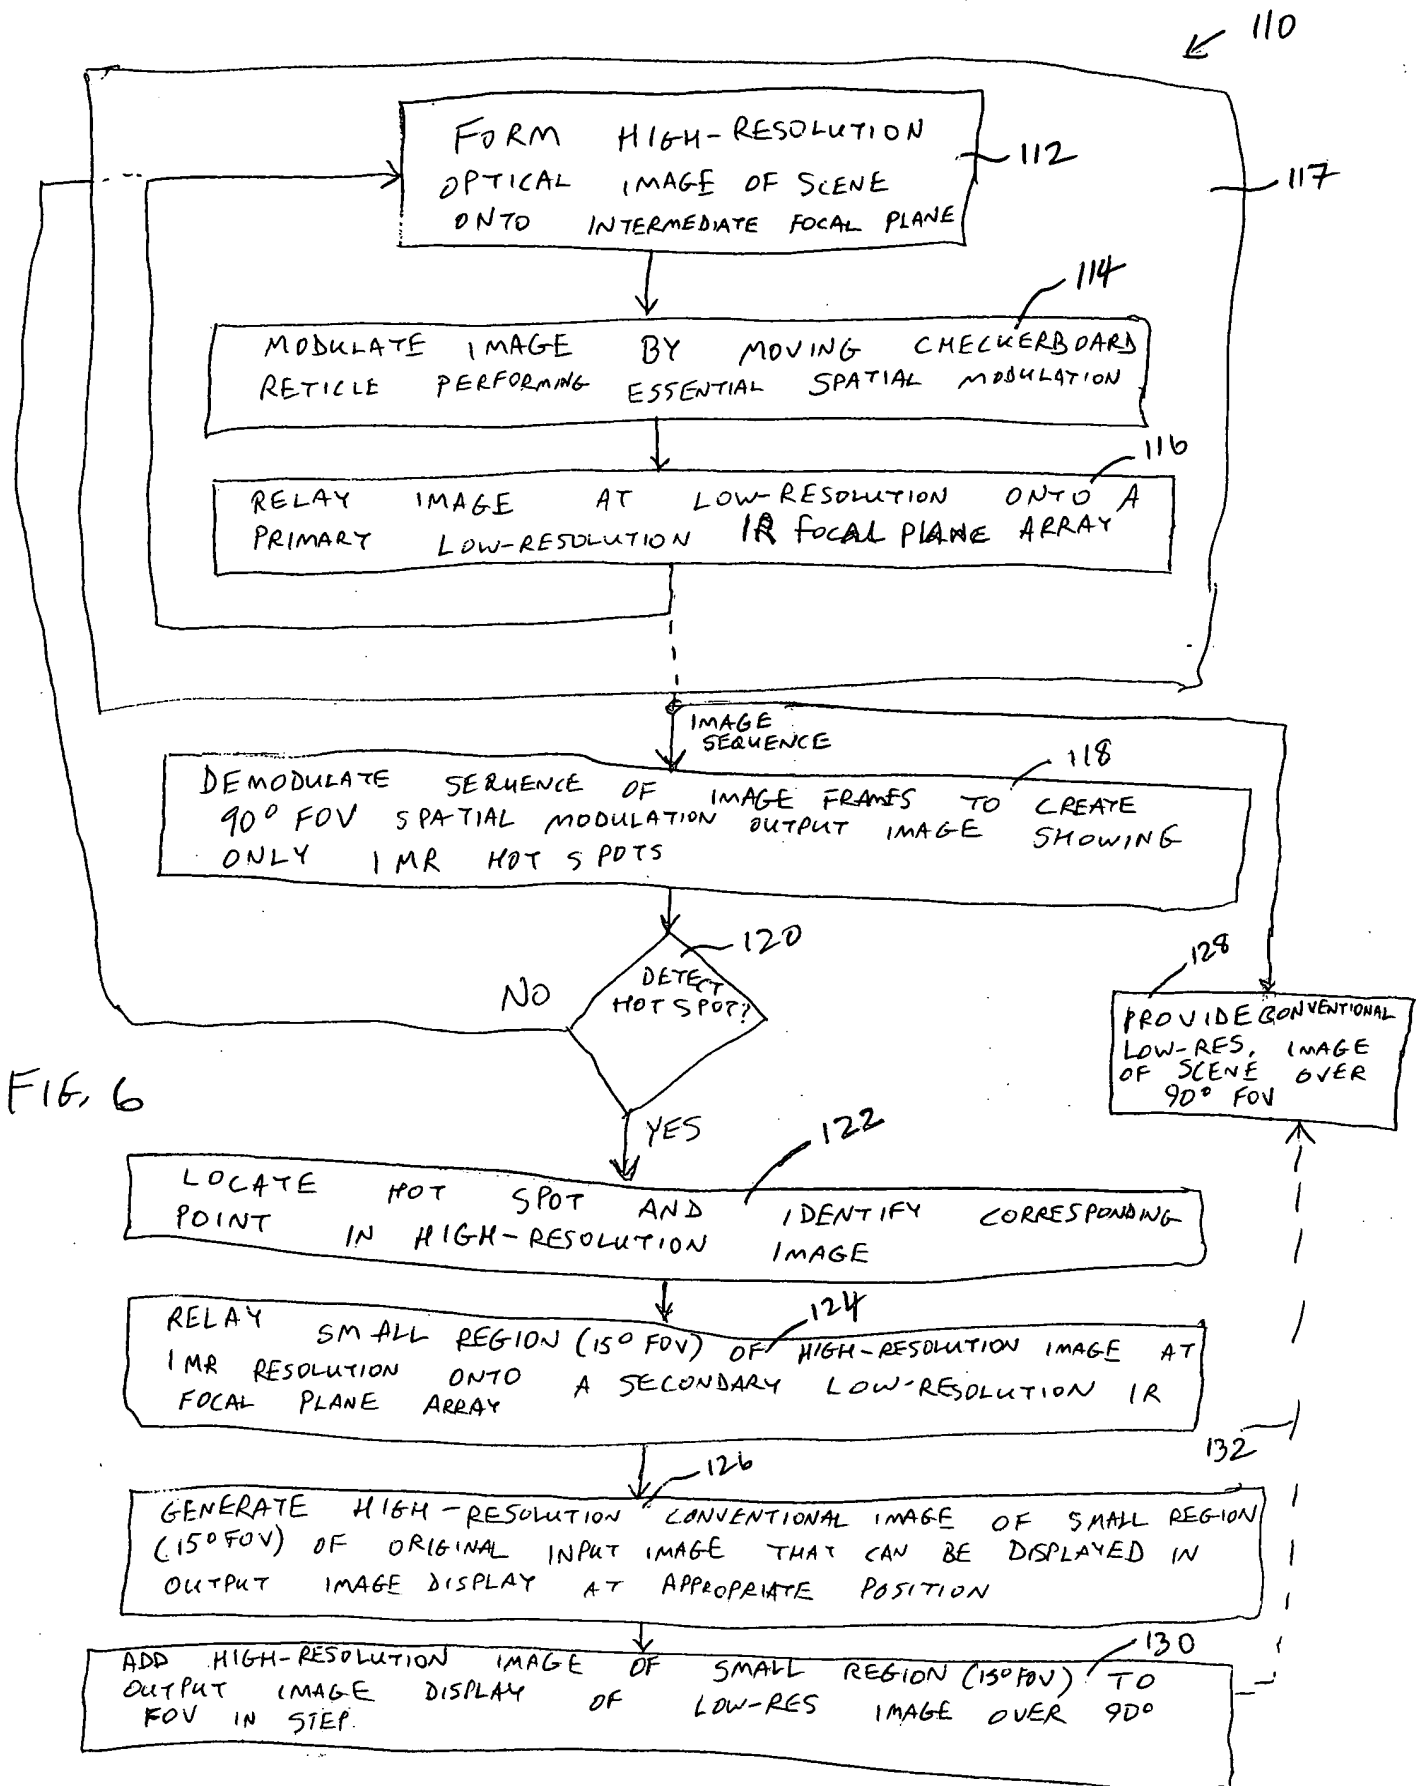 110
FORM HIGH-RESOLUTION
OPTICAL IMAGE OF SCENE
ONTO INTERMEDIATE FOCAL PLANE
112
117
114
MODULATE IMAGE BY MOVING CHECKERBOARD
RETICLE PERFORMING ESSENTIAL SPATIAL MODULATION
116
RELAY IMAGE AT LOW-RESOLUTION ONTO A
PRIMARY LOW-RESOLUTION IR FOCAL PLANE ARRAY
IMAGE
SEQUENCE
118
DEMODULATE SEQUENCE OF IMAGE FRAMES TO CREATE
90° FOV SPATIAL MODULATION OUTPUT IMAGE SHOWING
ONLY 1 MR HOT SPOTS
120
DETECT
HOT SPOT?
NO
128
PROVIDE CONVENTIONAL
LOW-RES, IMAGE
OF SCENE OVER
90° FOV
FIG. 6
YES
122
LOCATE HOT SPOT AND IDENTIFY CORRESPONDING
POINT IN HIGH-RESOLUTION IMAGE
124
RELAY SMALL REGION (15° FOV) OF HIGH-RESOLUTION IMAGE AT
1 MR RESOLUTION ONTO A SECONDARY LOW-RESOLUTION IR
FOCAL PLANE ARRAY
132
126
GENERATE HIGH-RESOLUTION CONVENTIONAL IMAGE OF SMALL REGION
(15° FOV) OF ORIGINAL INPUT IMAGE THAT CAN BE DISPLAYED IN
OUTPUT IMAGE DISPLAY AT APPROPRIATE POSITION
130
ADD HIGH-RESOLUTION IMAGE OF SMALL REGION (15° FOV) TO
OUTPUT IMAGE DISPLAY OF LOW-RES IMAGE OVER 90°
FOV IN STEP.